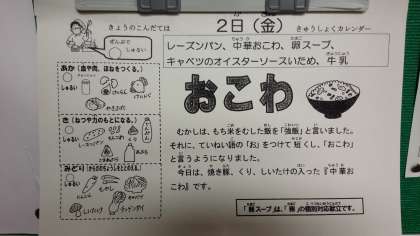 きょうのこんだては
2日（金）
きゅうしょくカレンダー
ぜんぶで
しゅるい
レーズンパン、中華おこわ、卵スープ、
キャベツのオイスターソースいため、牛乳
あか（血や肉、ほねをつくる。）
しゅるい
やきぶた
き（ねつや力のもとになる。）
しゅるい
レーズンパン
みどり（からだのちょうしをととのえる。）
しゅるい
もやし
しいたけ
チンゲンサイ
おこわ
むかしは、もち米をむした飯を「強飯」と言いました。
それに、ていねい語の「お」をつけて短くし、「おこわ」
と言うようになりました。
今日は、焼き豚、くり、しいたけの入った『中華お
こわ』です。
「卵スープ」は、「卵」の個別対応献立です。